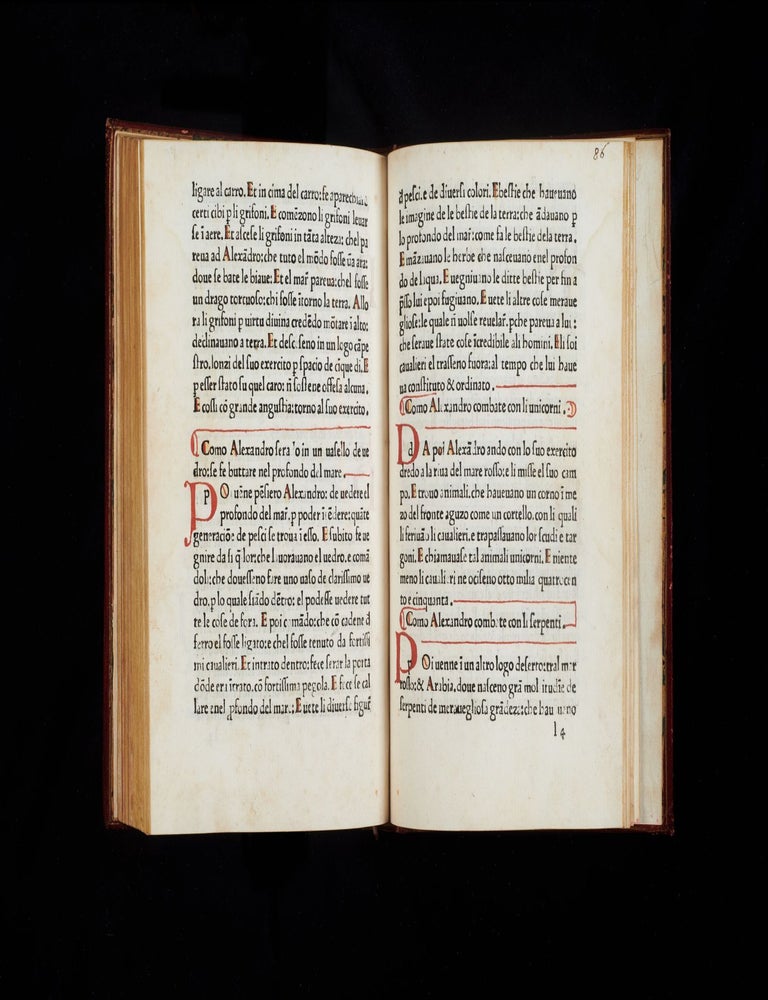 ligare al carro. Et in cima del carro: fe aparechiar
certi cibi p li grifoni. E comēzono li grifoni leuar
se ī aere. Et ascese li grifoni in tāta alteza: chel pa
reua ad Alexādro: che tuto el mōdo fosse ūa ara:
doue se bate le biaue: Et el mar pareua: chel fosse
un drago tortuoso: chi fosse ītorno la terra. Allo
ra li grifoni p uirtu diuina credēdo mōtare ī alto:
declinauano a terra. Et desceseno in un logo cāpe
stro, lonzi del suo exercito p spacio de cīque di. E
p esser stato su quel caro: ñ sostene offesa alcuna.
E cossi cō grande angustia: torno al suo exercito.
Como Alexandro serato in un uasello de ue
dro: se fe buttare nel profondo del mare
p
POi uēne pēsiero Alexandro: de uedere el
profondo del mar, p poder ītēdere: quāte
generaciōe de pesci se troua ī esso. E subito fe ue
gnire da si q̄lor: che lauorauano el uedro, e comā
doli: che douesseno fare uno uaso de clarissimo ue
dro, p lo quale stādo dētro: el podesse uedere tut
te le cose de fora. E poi comādo: che cō cadene d
ferro el fosse ligato: e chel fosse tenuto da fortissi
mi caualieri. Et intrato dentro: fece serar la porta
dōde era ītrato, cō fortissima pegola. E fece se cal
lare nel pfondo del mar: E uete li diuerse figur
86
d pesci, e de diuersi colori. E bestie che haueuano
le imagine de le bestie de la terra: che ādauano p
lo profondo del mar: come fa le bestie dela terra.
E māzauano le herbe che nasceuano enel profon
do de laqua. E uegniuano le ditte bestie per fin a
pisso lui e poi fugiuano. E uete li altre cose meraue
gliose: le quale ñ uolse reuelar, pche pareua a lui:
che seraue state cose īcredibile ali homini. E li soi
caualieri el trasseno fuora: al tempo che lui haue
ua constituto & ordinato.
Como Alexandro combate con li unicorni.
d
DA poi Alexādro ando con lo suo exercito
dredo a la riua del mare rosso: e li misse el suo cam
po. E trouo animali, che haueuano un corno ī me
zo del fronte aguzo come un cortello, con li quali
li feriuāo li caualieri, e trapassauano lor scudi e tar
goni. E chiamauase tal animali unicorni. E niente
meno li caualieri ne ociseno otto milia quatrocen
to e cinquanta.
Como Alexandro combate con li serpenti.
p
POi uenne ī un altro logo deserto: tral mar
rosso: & Arabia, doue nasceno grā moltitudīe de
serpenti de merauegliosa grādeza: che haueuano
l 4